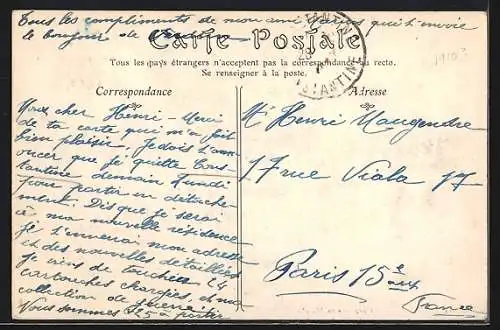 Tous les compliments de mon ami qui t'envoie
le bonjour de
Carte Postale
Tous les pays étrangers n'acceptent pas la correspondance au recto.
Se renseigner à la poste.
CONSTANTINE
CONSTANTINE
1910?
Correspondance
Mon cher Henri - Merci
de ta carte qui m'a fait
bien plaisir, je dois t'ann
oncer que je quitte Cons
tantine demain lundi
pour partir en détache
ment. Dès que je serai
à ma nouvelle résidence
je t'enverrai mon adresse
et des nouvelles détaillées
Je viens de toucher 24
cartouches chargées, et ma
collection de guerre
Nous sommes 25 à partir
Adresse
Mr Henri Maugendre
17 rue Viala 17
Paris 15e arr
France